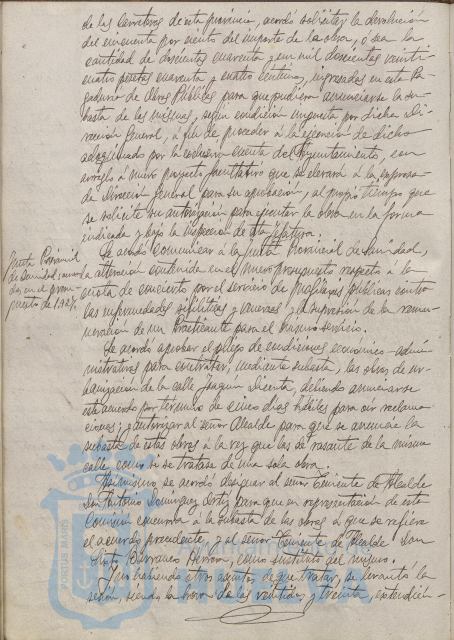 de las Carreteras de esta provincia, acordó solicitar la devolución
del cincuenta por ciento del importe de la obra, o sea la
cantidad de doscientas cuarenta y un mil doscientas veinti
cuatro pesetas cuarenta y cuatro céntimos, ingresadas en esta Pa-
gaduría de Obras Públicas para que pudiera anunciarse la su-
basta de las mismas, según condición impuesta por dicha Di-
rección General, a fin de proceder a la ejecución de dicho
adoquinado por la exclusiva cuenta del Ayuntamiento, con
arreglo a nuevo proyecto facultativo que se elevará a la expresa-
da Dirección General para su aprobación, al propio tiempo que
se solicite su autorización para ejecutar la obra en la forma
indicada y bajo la inspección de esta Jefatura.
Junta Provincial
de Sanidad,
dos, en el presu-
puesto de 1.927.
Se acordó comunicar a la Junta Provincial de Sanidad,
la alteración contenida en el nuevo presupuesto respecto a la
cuota de concierto por el servicio de profilaxis públicas contra
las enfermedades sifilíticas y venéreas y la supresión de la remu-
neración de un Practicante para el mismo servicio.
Se acordó aprobar el pliego de condiciones económico-admi-
nistrativas para contratar, mediante subasta, las obras de ur-
banización de la calle Joaquín Dicenta, debiendo anunciarse
este acuerdo por término de cinco días hábiles para oír reclama-
ciones; y autorizar al señor Alcalde para que se anuncie la
subasta de estas obras a la vez que las de rasante de la misma
calle, como si se tratase de una sola obra.
Asimismo se acordó designar al señor Teniente de Alcalde
Don Antonio Domínguez Ortiz para que en representación de esta
Comisión concurra a la subasta de las obras a que se refiere
el acuerdo precedente, y al señor Teniente de Alcalde Don
Barranco Herrera, como sustituto del mismo.
Y no habiendo otros asuntos de que tratar, se levantó la
sesión, siendo la hora de las veintidós y treinta, extendién-
PORTUS MARIS
Ayuntamiento de